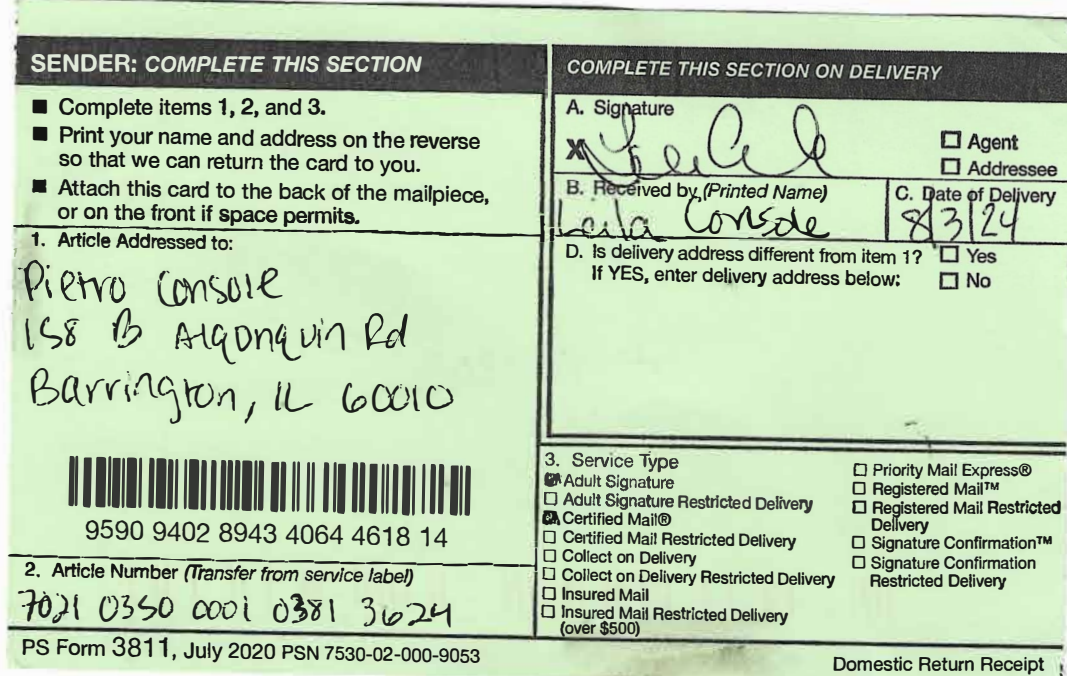 SENDER: COMPLETE THIS SECTION
■ Complete items 1, 2, and 3.
■ Print your name and address on the reverse
so that we can return the card to you.
■ Attach this card to the back of the mailpiece,
or on the front if space permits.
1. Article Addressed to:
Pietro Console
158 B Algonquin Rd
Barrington, IL 60010
9590 9402 8943 4064 4618 14
2. Article Number (Transfer from service label)
7021 0350 0001 0381 3624
PS Form 3811, July 2020 PSN 7530-02-000-9053
COMPLETE THIS SECTION ON DELIVERY
A. Signature
X
☐ Agent
☐ Addressee
B. Received by (Printed Name)
Leila Console
C. Date of Delivery
8/3/24
D. Is delivery address different from item 1? ☐ Yes
If YES, enter delivery address below: ☐ No
3. Service Type
Adult Signature
☐ Adult Signature Restricted Delivery
Certified Mail®
☐ Certified Mail Restricted Delivery
☐ Collect on Delivery
☐ Collect on Delivery Restricted Delivery
☐ Insured Mail
☐ Insured Mail Restricted Delivery
(over $500)
☐ Priority Mail Express®
☐ Registered Mail™
☐ Registered Mail Restricted
Delivery
☐ Signature Confirmation™
☐ Signature Confirmation
Restricted Delivery
Domestic Return Receipt